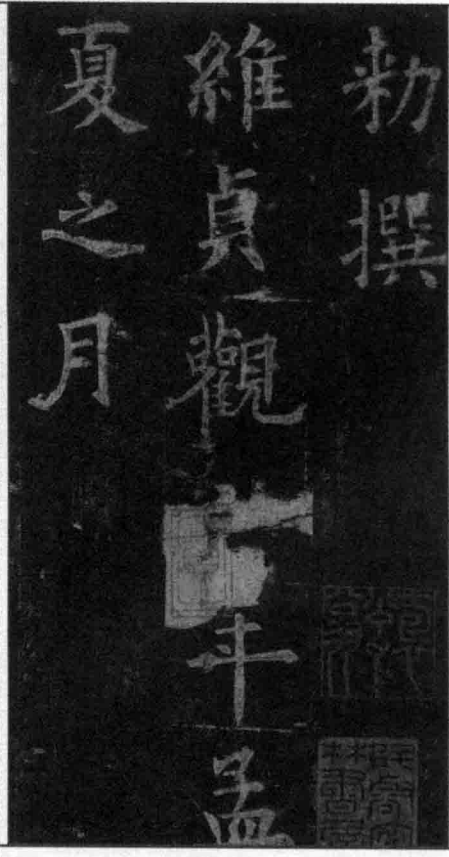 勅撰
維貞觀年孟
夏之月